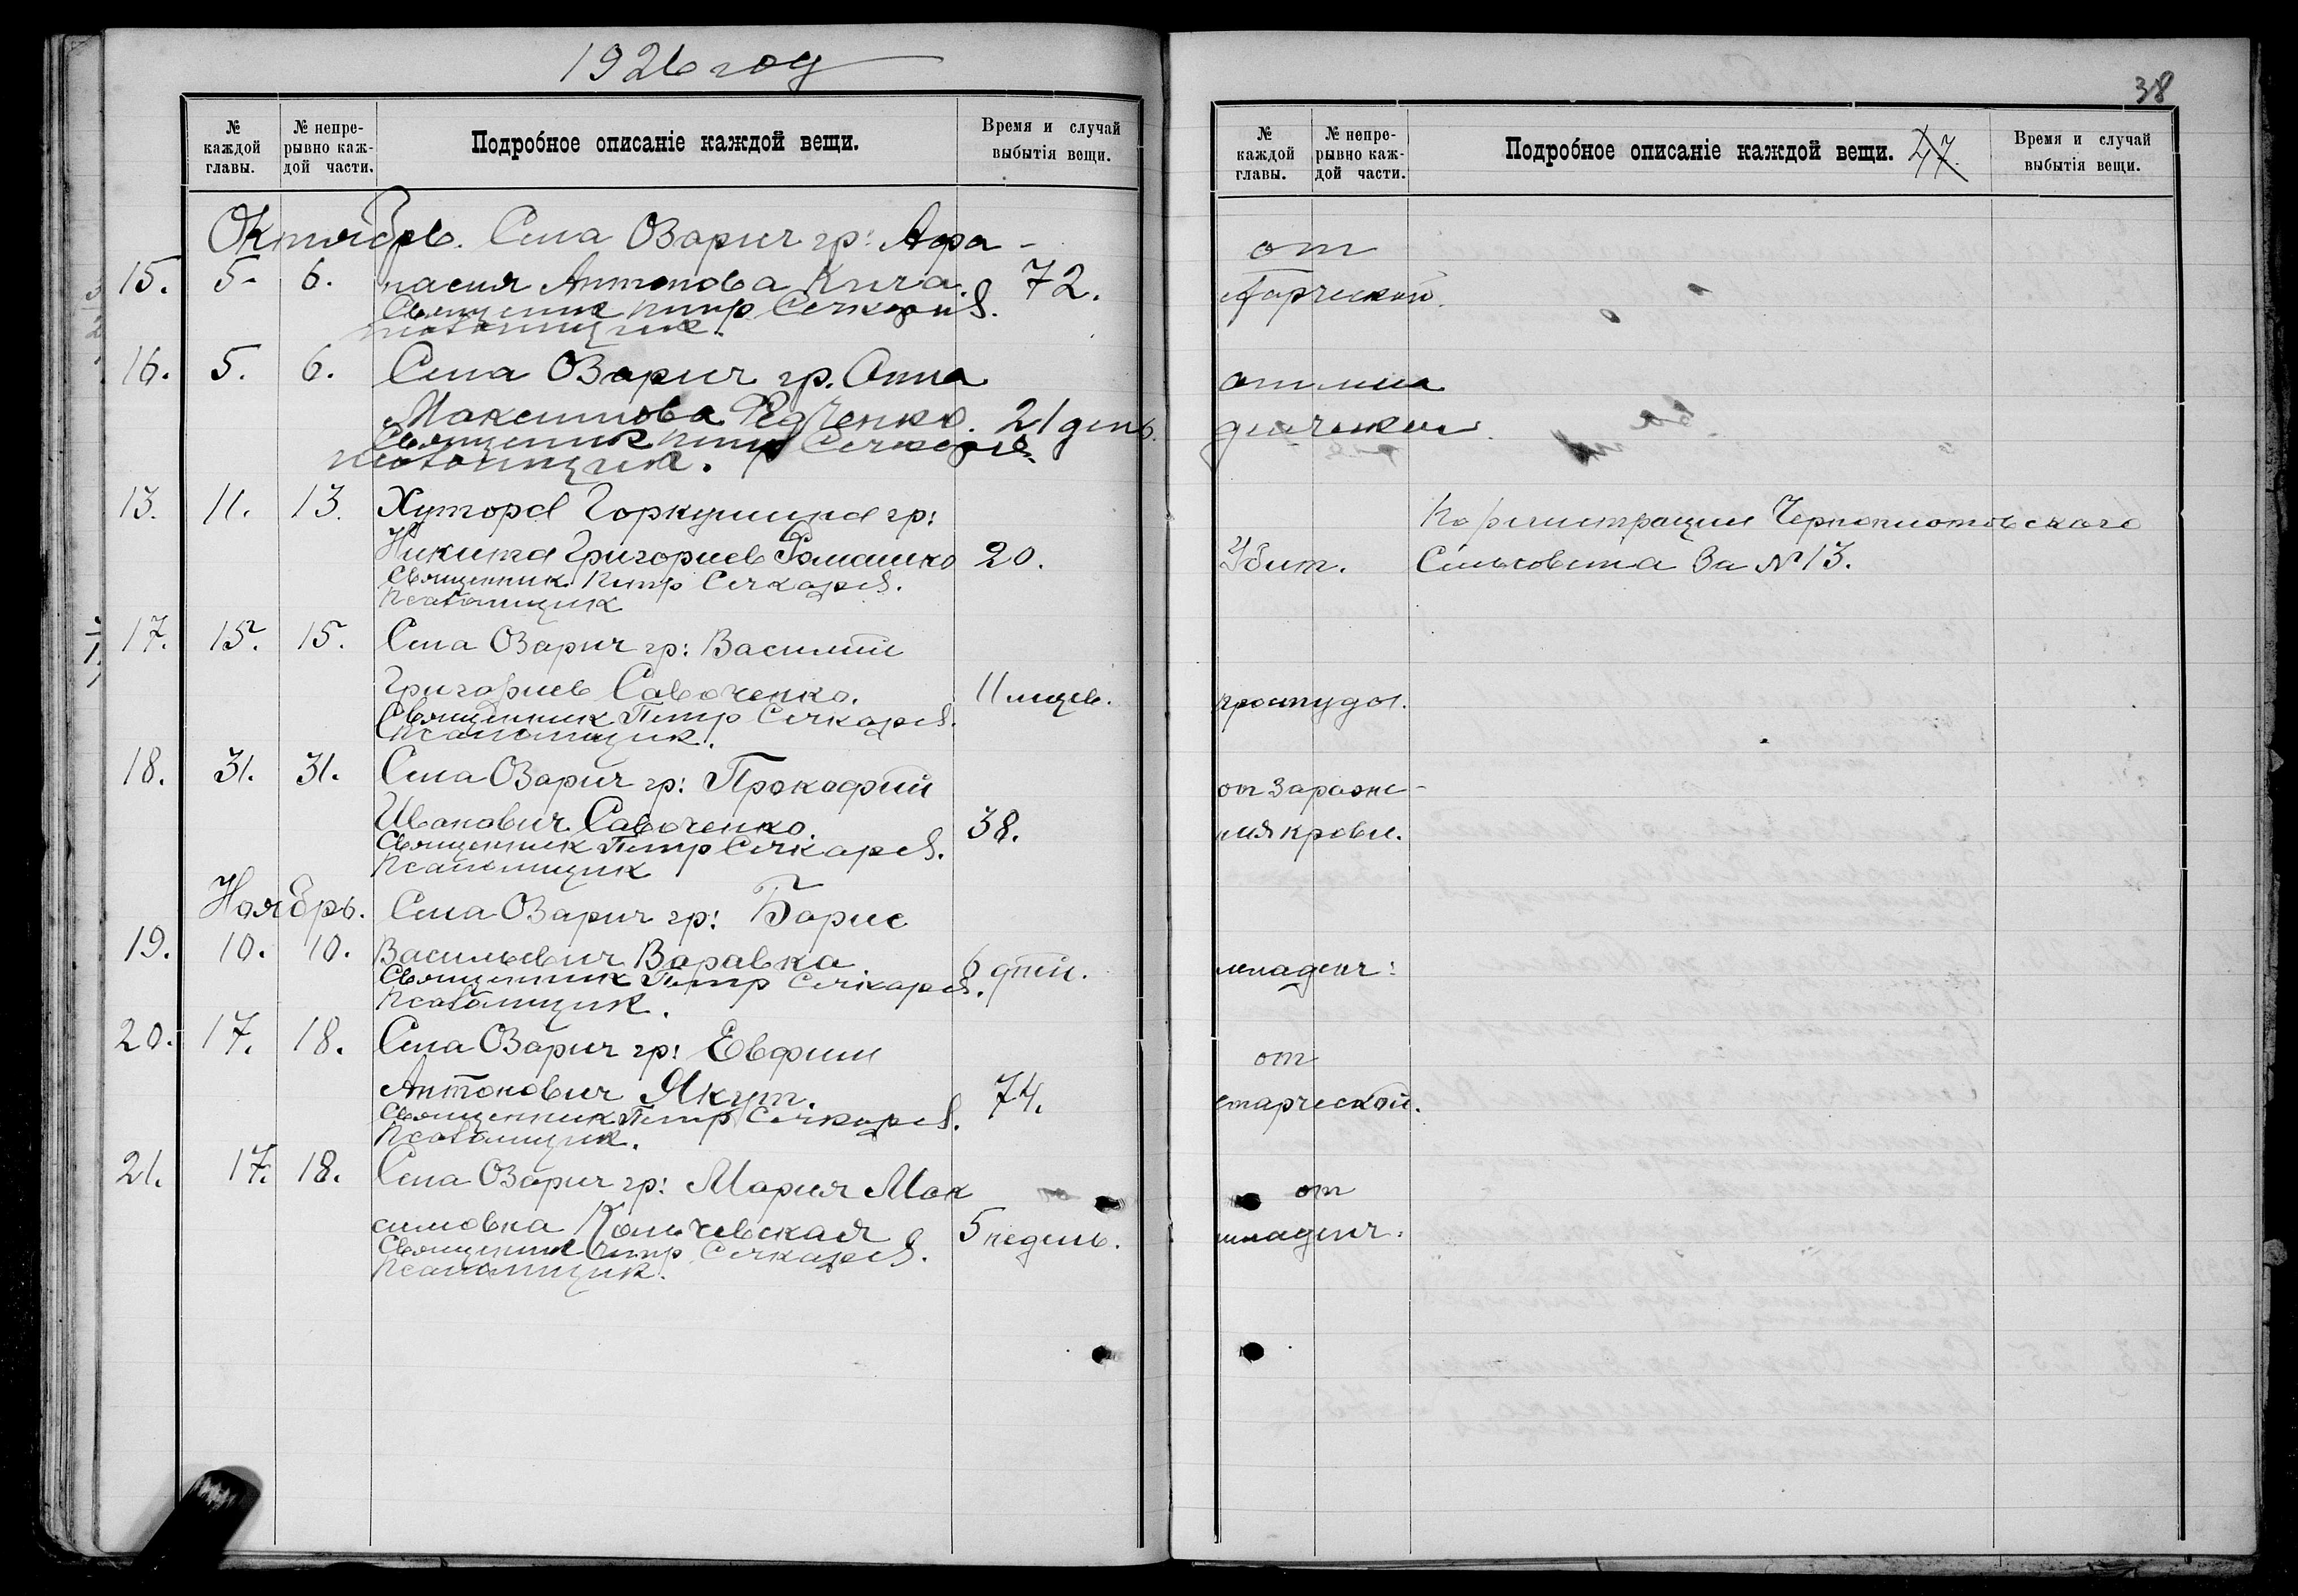 1926 год
№ каждой главы.
№ непре-рывно каж-дой части.
Подробное описаніе каждой вещи.
Время и случай выбытія вещи.
Октябрь. Села Озарич гр: Афа-
15. 5. 6. насия Антонова Кича. 72.
Священник Петр Сечкарев.
псаломщик.
16. 5. 6. Села Озарич гр. Анна
Максимова Редченко. 21 день.
Священник Петр Сечкарев.
псаломщик.
13. 11. 13. Хутора Горкушина гр:
Никита Григориев Ромашко 20.
Священник Петр Сечкарев.
Псаломщик
17. 15. 15. Села Озарич гр: Василий
Григориев Савоченко. 11 месцев.
Священник Петр Сечкарев.
Псаломщик.
18. 31. 31. Села Озарич гр: Прокофий
Иванович Савоченко. 38.
Священник Петр Сечкарев.
Псаломщик
Ноябрь. Села Озарич гр: Борис
19. 10. 10. Васильевич Варавка 6 дней.
Священник Петр Сечкарев.
Псаломщик.
20. 17. 18. Села Озарич гр: Евфим
Антонович Якут. 74.
Священник Петр Сечкарев.
Псаломщик.
21. 17. 18. Села Озарич гр: Мария Мак
симовна Кольчевская 5 недель.
Священник Петр Сечкарев.
Псаломщик.
38
№ каждой главы.
№ непре-рывно каж-дой части.
Подробное описаніе каждой вещи. 47.
Время и случай выбытія вещи.
от
старческой.
от мла
денческой.
По регистрации
Убит. Сельсовета За № 13.
простуды.
от зараже-
ния крови.
младенч:
от
старческой.
от
младенч: